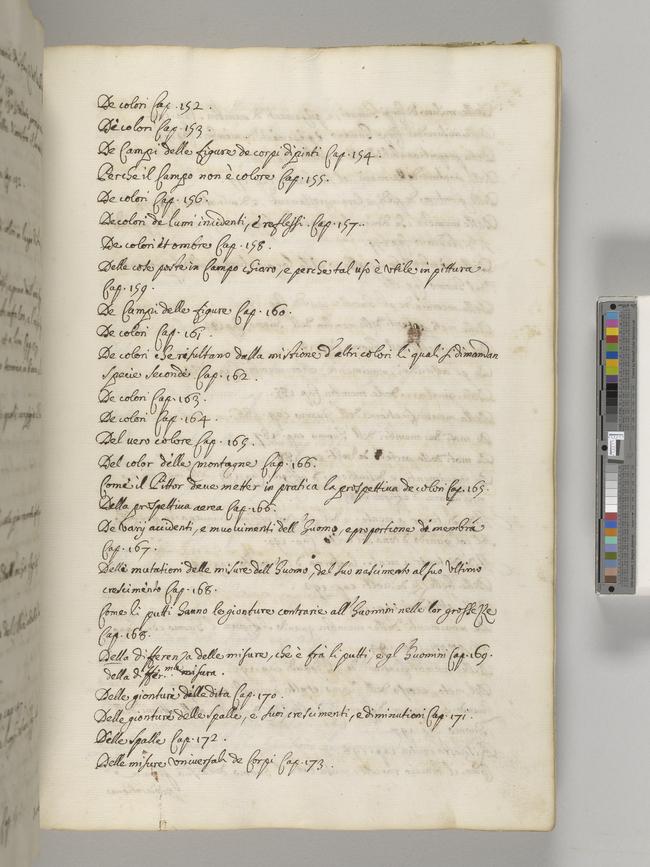 De colori Cap. 152.
De colori Cap. 153.
De Campi delle figure de corpi dipinti Cap. 154.
Perche il Campo non è colore Cap. 155.
De colori Cap. 156.
De colori de lumi incidenti, e reflessi. Cap. 157.
De colori et ombre Cap. 158.
Delle cose poste in Campo chiaro, e perche tal uso è utile in pittura
Cap. 159.
De Campi delle figure Cap. 160.
De colori Cap. 161.
De colori che resultano dalla mistione d'altri colori li quali si dimandan
specie seconde Cap. 162.
De colori Cap. 163.
De colori Cap. 164.
Del vero colore Cap. 165.
Del color delle montagne Cap. 166.
Come il Pittor deve metter in pratica la prospettiva de colori Cap. 165.
Della prospettiva aerea Cap. 166.
De varij accidenti, e movimenti dell'huomo, e proportione di membra
Cap. 167.
Delle mutationi delle misure dell'huomo, del suo nascimento al suo ultimo
crescimento Cap. 168.
Come li putti hanno le gionture contrarie all'huomini nelle lor grossezze
Cap. 168.
Della differenza delle misure, che è frà li putti, e gl'huomini Cap. 169.
della misura.
Delle gionture delle dita Cap. 170.
Delle gionture delle spalle, e suoi crescimenti, e diminutioni Cap. 171.
Delle spalle Cap. 172.
Delle misure universali de Corpi Cap. 173.